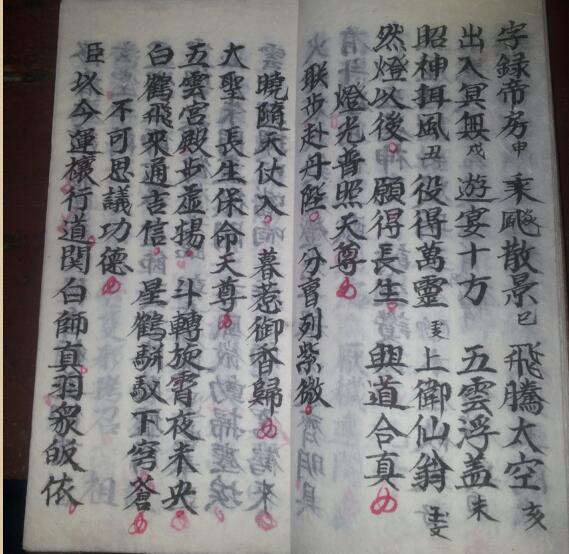 字録帝房申 乘飈散景巳 飛騰太空亥
出入冥無戌 遊宴十方 五雲浮盖未
昭神捐風丑 役得萬靈 上衛仙翁
然燈以後 願得長生 興道合真
燈光普照天尊
聀步赴丹陛 分曺列紫微
曉隨天仗入 暮惹御香歸
大聖長生保命天尊
五雲宮殿步虛揚 斗轉旋霄夜未央
白鶴飛來通吉信 星鶴駢馭下穹蒼
不可思議功德
臣以今運欀行道関白師真羽衆皈依